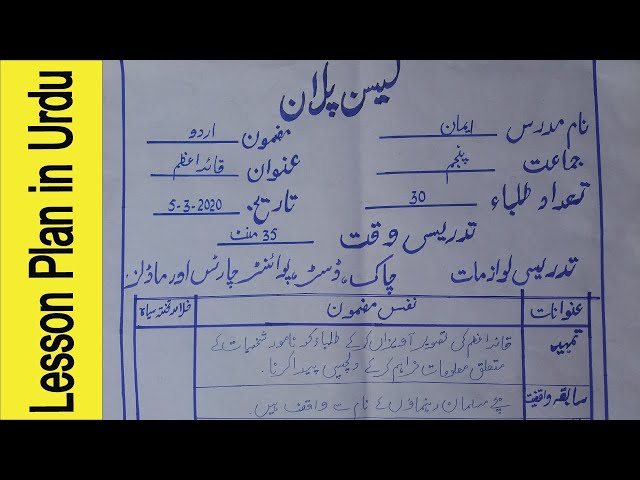 Lesson Plan in Urdu
لیسن پلان
نام مدرس ایمان مضمون اردو
جماعت پنجم عنوان قائداعظم
تعداد طلباء 30 تاریخ 5-3-2020
تدریسی وقت 35 منٹ
تدریسی لوازمات چاک، ڈسٹر، پوائنٹر چارٹس اور ماڈلز
عنوانات نفس مضمون خلاصہ تختہ سیاہ
تمہید قائداعظم کی تصویر آویزاں کرکے طلباء کو نامور شخصیات کے
متعلق معلومات فراہم کرکے دلچسپی پیدا کرنا۔
سابقہ واقفیت بچے مسلمان رہنماؤں کے نام سے واقف ہیں۔